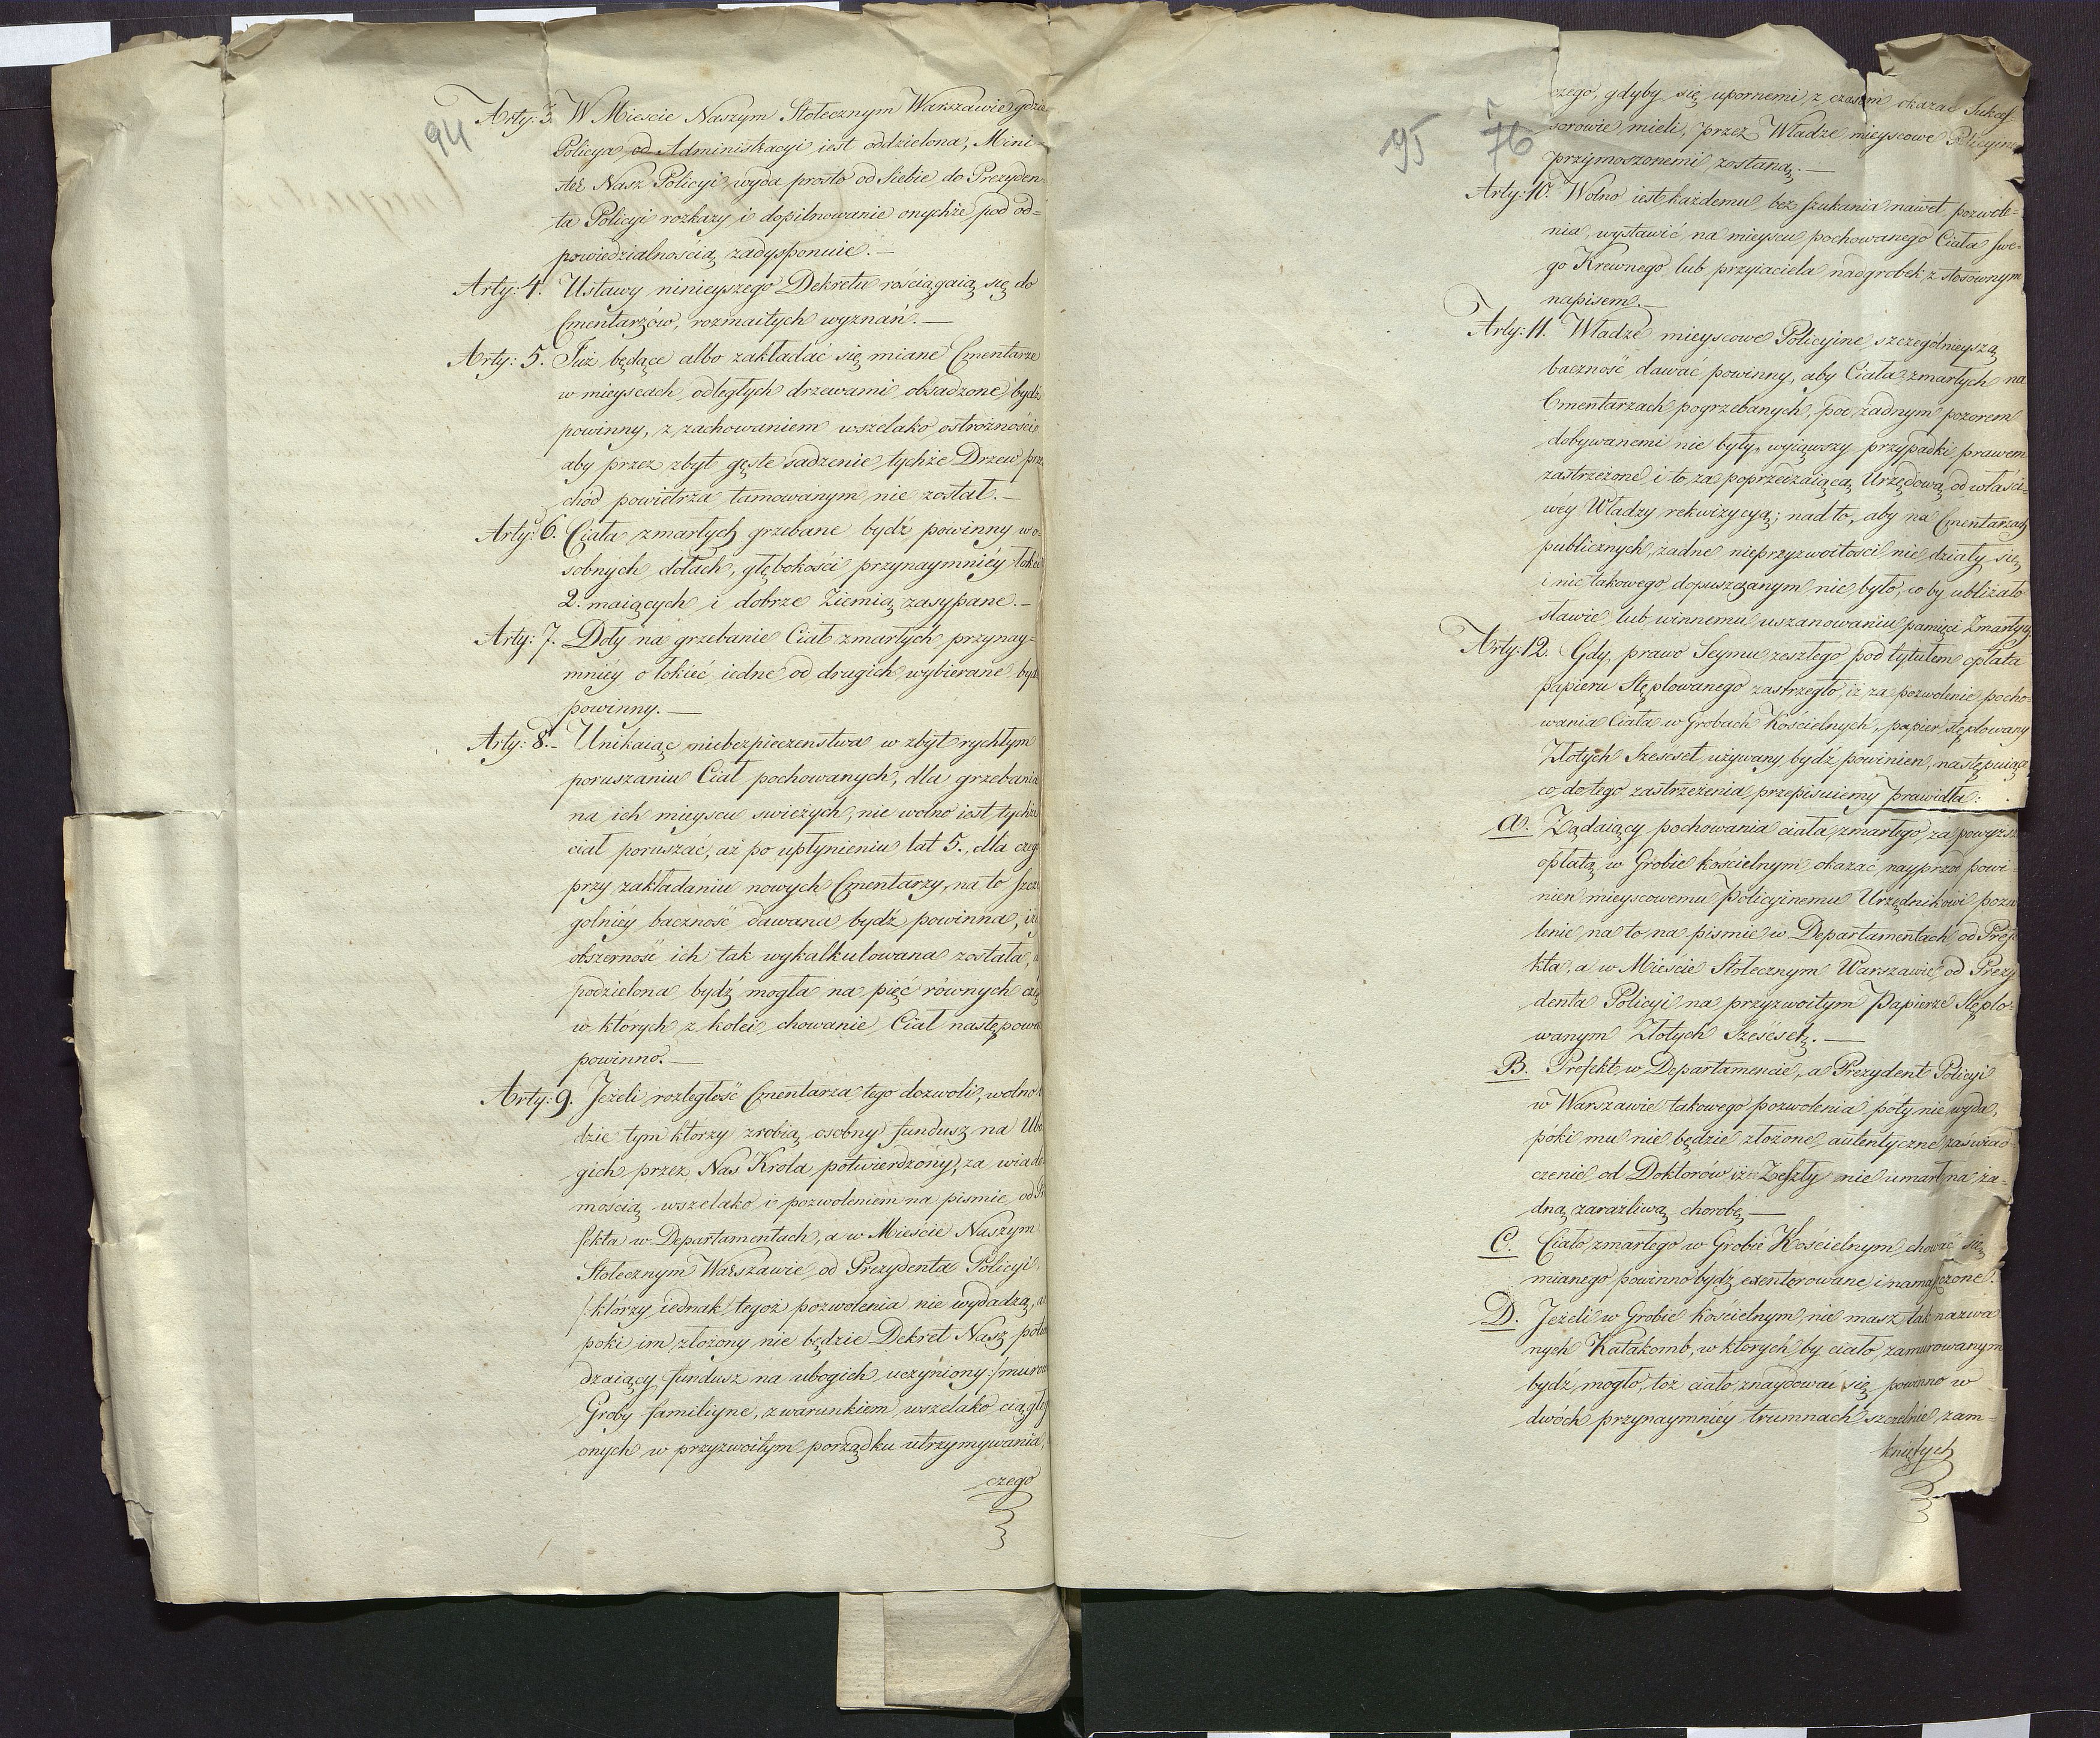 94
Arty: 3. W Mieście Naszym Stołecznym Warszawie, gdzie
Policya od Administracyi iest oddzielona, Mini-
ster Nasz Policyi wyda prosto od Siebie do Prezyden-
ta Policyi rozkazy i dopilnowanie onychże pod od=
powiedzialnością zadysponuie.—
Arty: 4. Ustawy ninieyszego Dekretu rościągaią się do
Cmentarzów, rozmaitych wyznań.—
Arty: 5. Już będące albo zakładać się miane Cmentarze
w mieyscach odległych drzewami obsadzone bydź
powinny, z zachowaniem wszelako ostrożności
aby przez zbyt gęste sadzenie tychże Drzew prze
chód powietrza tamowanym nie został.—
Arty: 6. Ciała zmarłych grzebane bydź powinny w o-
sobnych dołach, głębokości przynaymniéy łokci
2. maiących i dobrze Ziemią zasypane.—
Arty: 7. Doły na grzebanie Ciał zmarłych przynay=
mniéy o łokieć iedne od drugich wybierane bydź
powinny.—
Arty: 8.- Unikaiąc niebezpieczenstwa w zbyt rychłym
poruszaniu Ciał pochowanych, dla grzebania
na ich mieyscu swieżych, nie wolno iest tychże
ciał poruszać, aż po upłynieniu lat 5., dla czego
przy zakładaniu nowych Cmentarzy, na to szcze
golniéy baczność dawana bydź powinna, iż
obszerność ich tak wykalkulowana została,
podzielona bydź mogła na pięć równych częś
w których z kolei chowanie Ciał następowa
powinno.—
Arty: 9. Jeżeli rozległość Cmentarza tego dozwoli, wolno
dzie tym którzy zrobią osobny fundusz na Ubo
gich przez Nas Króla potwierdzony, za wiado
mością wszelako i pozwoleniem na pismie od Pre
fekta w Departamentach, a w Mieście Naszym
Stołecznym Warszawie od Prezydenta Policyi,
/:którzy iednak tegoż pozwolenia nie wydadzą, a
poki im złożony nie będzie Dekret Nasz potwi
dzaiący fundusz na ubogich uczyniony:/ murow
Groby familiyne, z warunkiem wszelako ciągłeg
onych w przyzwoitym porządku utrzymywania,
czego
95 76
czego, gdyby się upornemi z czasem okazać Sukces-
sorowie mieli, przez Władze mieyscowe Policyine
przymoszonemi zostaną.—
Arty: 10. Wolno iest każdemu bez szukania nawet pozwole-
nia wystawić na mieyscu pochowanego Ciała swe-
go Krewnego lub przyiaciela nadgrobek z stosownym
napisem.—
Arty: 11. Władze mieyscowe Policyine szczególnieyszą
baczność dawać powinny, aby Ciała zmarłych na
Cmentarzach pogrzebanych, pod żadnym pozorem
dobywanemi nie były, wyiąwszy przypadki prawem
zastrzeżone i to za poprzedzaiącą Urzędową od właści-
wéy Władzy rekwizycyą; nad to, aby na Cmentarzach
publicznych żadne nieprzyzwoitości nie działy się,
i nic takowego dopuszczanym nie było, co by ubliżało
sławie lub winnemu uszanowaniu pamięci Zmarłych.
Arty: 12. Gdy prawo Seymu zeszłego pod tytułem opłata
papieru stęplowanego zastrzegło, iż za pozwolenie pocho-
wania Ciała w Grobach Kościelnych, papier stęplowany
Złotych Sześćset używany bydź powinien, następuiące
co do tego zastrzeżenia przepisuiemy prawidła:
A. Żądaiący pochowania ciała zmarłego za powyższą
opłatą w Grobie kościelnym okazać nayprzod powi-
nien mieyscowemu Policyinemu Urzędnikowi pozwo
lenie na to na pismie w Departamentach od Prefe
kta, a w Mieście Stołecznym Warszawie od Prezy
denta Policyi na przyzwoitym Papierze Stęplo-
wanym Złotych Sześćset.—
B. Prefekt w Departamencie, a Prezydent Policyi
w Warszawie takowego pozwolenia poty nie wyda,
póki mu nie będzie złożone autentyczne zaświad-
czenie od Doktorów iż Zeszły nie umarł na ża-
dną zaraźliwą chorobę.—
C. Ciało zmarłego w Grobie Kościelnym chować się
mianego powinno bydź exenterowane i namaszczone.
D. Jeżeli w Grobie kościelnym nie masz tak nazwa
nych Katakomb, w których by ciało zamurowanym
bydź mogło, toż ciało znaydować się powinno w
dwóch przynaymniéy trumnach szczelnie zam-
kniętych